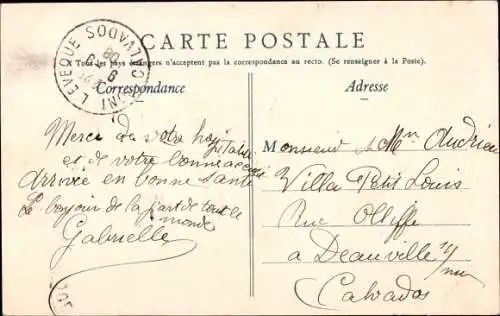 CARTE POSTALE
Tous les pays étrangers n'acceptent pas la correspondance au recto. (Se renseigner à la Poste)
Correspondance
Adresse
PONT L'EVEQUE CALVADOS
Merci de votre hospitalité
et de votre bonne accueil
arrivée en bonne santé
Le bonjour de la part de tout le
monde
Gabrielle
Monsieur & Mme Audrieu
Villa Petit Louis
Rue Olliffe
à Deauville s/mer
Calvados